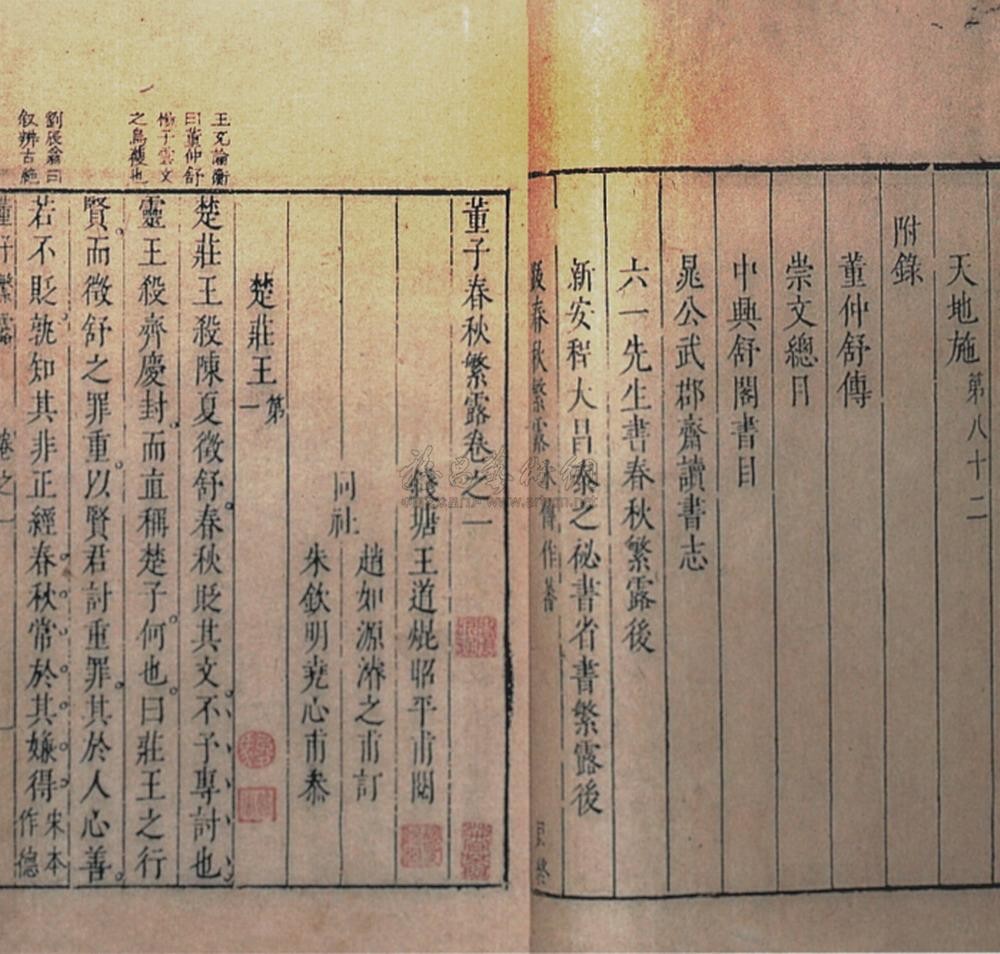 天地施第八十二
附錄
董仲舒傳
崇文總目
中興舒閣書目
晁公武郡齋讀書志
六一先生書春秋繁露後
新安程大昌泰之祕書省書繁露後
董子春秋繁露卷之一
錢塘王道焜昭平甫閱
同社
趙如源濬之甫訂
朱欽明堯心甫叅
楚莊王第一
楚莊王殺陳夏徵舒。春秋貶其文。不予專討也。
靈王殺齊慶封。而直稱楚子。何也。曰莊王之行
賢。而徵舒之罪重。以賢君討重罪。其於人心善。
若不貶。孰知其非正經。春秋常於其嫌得宋本作德
王充論衡
曰董仲舒
子雲文
之烏穫也
劉辰翁曰
叙辨古絶
董子繁露 卷之一